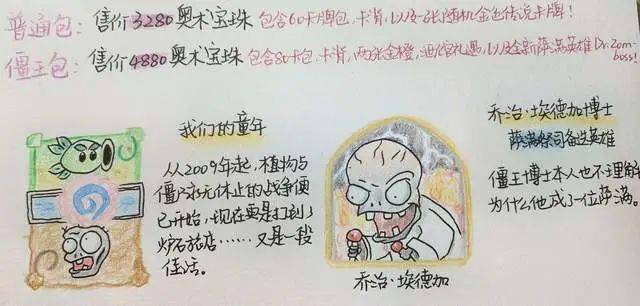 普通包：售价3280奥术宝珠 包含60卡牌包，卡背，以及一张随机金色传说卡牌！
僵王包：售价4880奥术宝珠 包含80卡包，卡背，两张金橙，迪馆礼遇，以及全新萨满英雄 Dr.Zom-
boss!
我们的童年
从2009年起，植物与
僵尸永无休止的战争便
已开始，现在竟是打到了
炉石旅店……又是一段
佳话。
乔治·埃德加
乔治·埃德加博士
萨满祭司备选英雄
僵王博士本人也不理解
为什么他成了一位萨满。